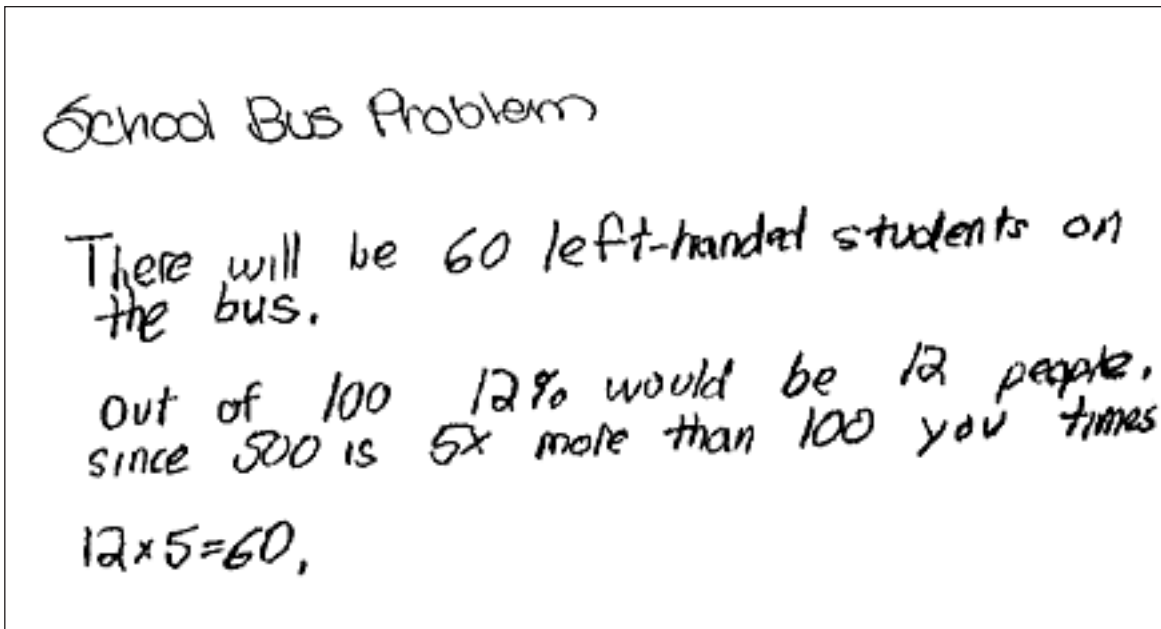 School Bus Problem
There will be 60 left-handed students on
the bus.
out of 100 12% would be 12 people.
since 500 is 5x more than 100 you times
12x5=60.